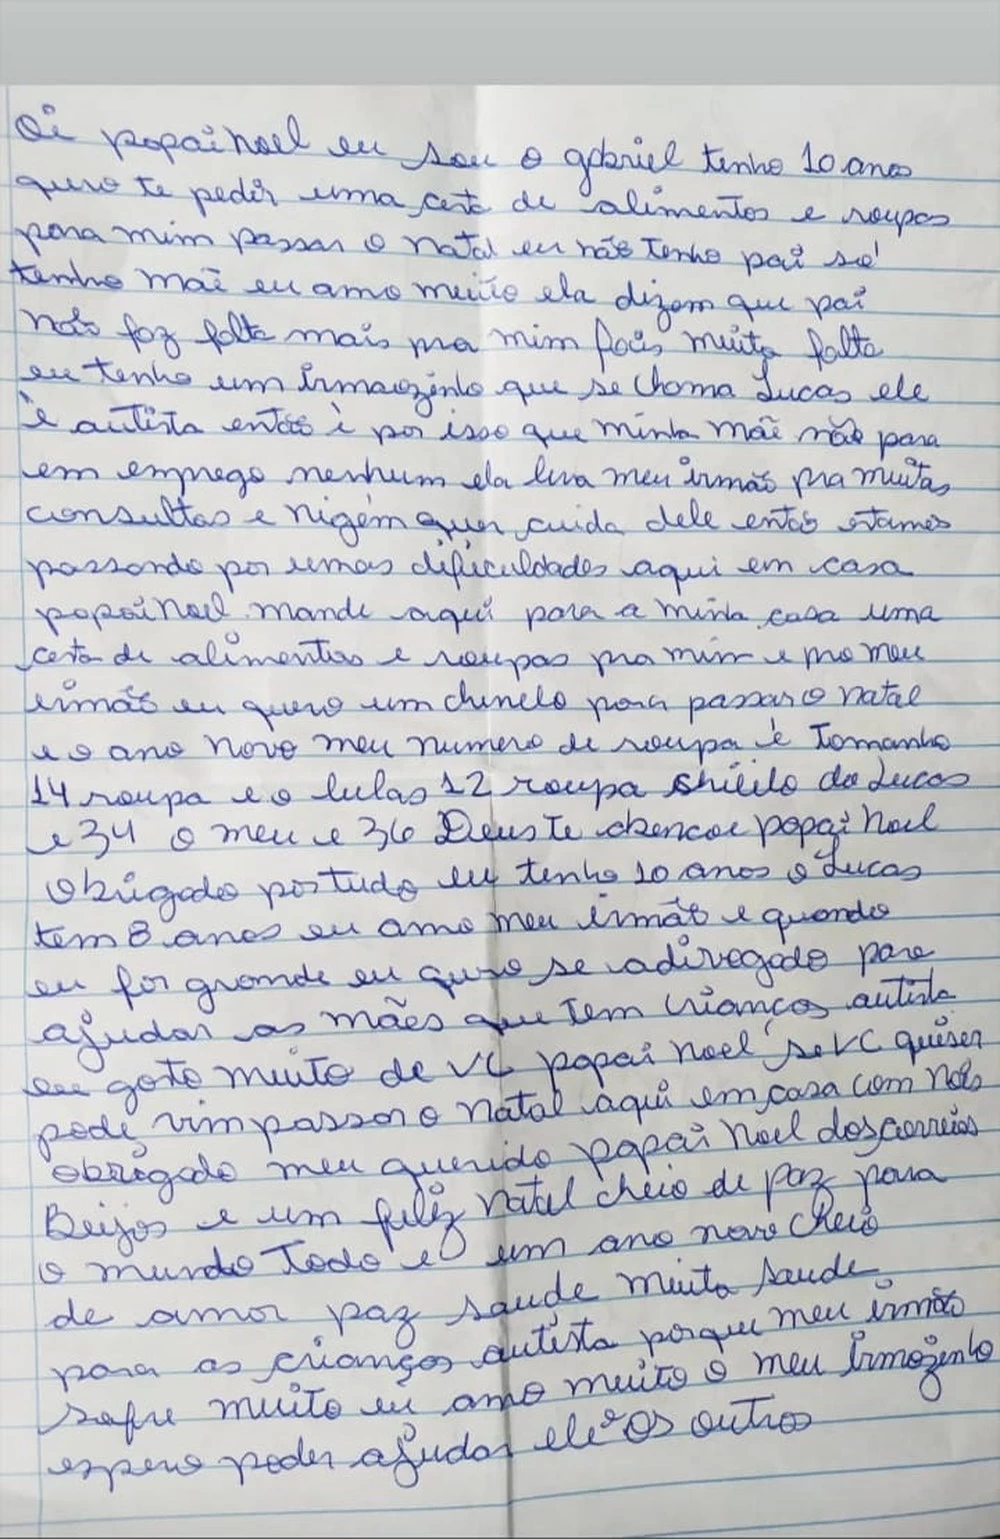 Oi papai noel eu sou o gabriel tenho 10 anos
quro te pedir uma cesta de alimentos e roupas
para mim passar o natal eu não tenho pai só
tenho mãe eu amo muito ela dizem que pai
não faz falta mais pra mim fais muita falta
eu tenho um irmaozinho que se choma Lucas ele
é autista então é por isso que minha mãe não para
em emprego nenhum ela leva meu irmão pra muitas
consultas e nigém quer cuida dele então estamos
passando por umas dificuldades aqui em casa
papai Noel mande aqui para a minha casa uma
cesta de alimentos e roupas pra mim e pro meu
irmão eu quero um chinelo para passar o natal
e o ano novo meu numero de roupa é tamanho
14 roupa e o lulas 12 roupa do Lucas
e 34 o meu e 36 Deus te abencoe papai Noel
Obrigado por tudo eu tenho 10 anos o Lucas
tem 8 anos eu amo meu irmão e quando
eu for grande eu quro se adivogado para
ajudar as mães que tem crianças autista
eu goto muito de vc papai noel se VC quiser
pode vim passar o natal aqui em casa com nós
obrigado meu querido papai Noel dos correios
Beijos e um feliz natal cheio de paz para
o mundo todo e um ano novo cheio
de amor paz saude muita saude
para as crianças autista porque meu irmão
sofre muito eu amo muito o meu irmozinho
espero poder ajudar ele e os outros